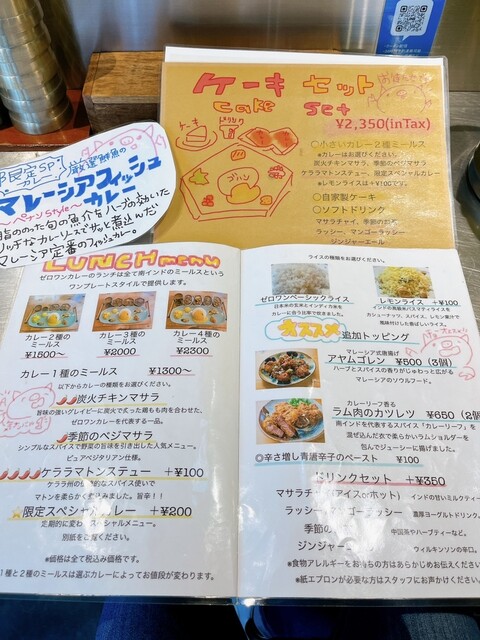 ケーキ セット
Cake Set
¥2,350(inTax)
ケーキ
ドリンク
ゴハン
○小さいカレー2種ミールス
*カレーはお選びください。
炭火チキンマサラ、季節のベジマサラ
ケララマトンステュー、限定スペシャルカレー
*レモンライスは+¥100です。
○自家製ケーキ
○ソフトドリンク
マサラチャイ、季節のお茶
ラッシー、マンゴーラッシー
ジンジャーエール
限定SP
カレー
厳選鮮魚の
マレーシアフィッシュ
カレー
〜ペナンstyle〜
脂ののった旬の魚介をハーブの効いた
リッチなカレーソースでサッと煮込んだ
マレーシア定番のフィッシュカレー。
LUNCH menu
ゼロワンカレーのランチは全て南インドのミールスという
ワンプレートスタイルで提供します。
カレー2種の
ミールス
¥1500〜
カレー3種の
ミールス
¥2000
カレー4種の
ミールス
¥2300
カレー1種のミールス ¥1300〜
以下からカレーの種類をお選びください。
炭火チキンマサラ
旨味の強いグレイビーに炭火で炙った鶏もも肉を合わせた、
ゼロワンカレーを代表する一品。
季節のベジマサラ
シンプルなスパイスで野菜の旨味を引き出した人気メニュー。
ピュアベジタリアン仕様。
ケララマトンステュー +¥100
ケララ州の伝統的なスパイス使いで
マトンを柔らかく煮込みました。旨辛!!
限定スペシャルカレー +¥200
定期的に変わるスペシャルメニュー。
別紙をご覧ください。
*価格は全て税込み価格です。
*1種と2種のミールスは選ぶカレーによってお値段が変わります。
ライスの種類をお選びください。
ゼロワンベーシックライス
日本米の玄米とインディカ米を
カレーに合う比率で炊きました。
レモンライス +¥100
インドの高級米バスマティライスを
カシューナッツ、スパイス、レモン果汁で
風味付けした香ばしいライス。
オススメ
追加トッピング
マレーシア式唐揚げ
アヤムゴレン ¥500（3個）
ハーブとスパイスの香りがじゅわっと広がる
マレーシアのソウルフード。
カレーリーフ香る
ラム肉のカツレツ ¥650（2個
南インドを代表するスパイス「カレーリーフ」を
混ぜ込んだ衣で柔らかなラムショルダーを
包んでジューシーに揚げました。
◎辛さ増し青唐辛子のペースト ¥100
ドリンクセット +¥350
マサラチャイ(アイスorホット) インドの甘いミルクティー
ラッシー/マンゴーラッシー 濃厚ヨーグルトドリンク。
季節のお茶 中国茶やハーブティーなど。
ジンジャーエール ウィルキンソンの辛口。
*食物アレルギーをお持ちの方はあらかじめお伝えください
*紙エプロンが必要な方はスタッフにお声かけください。